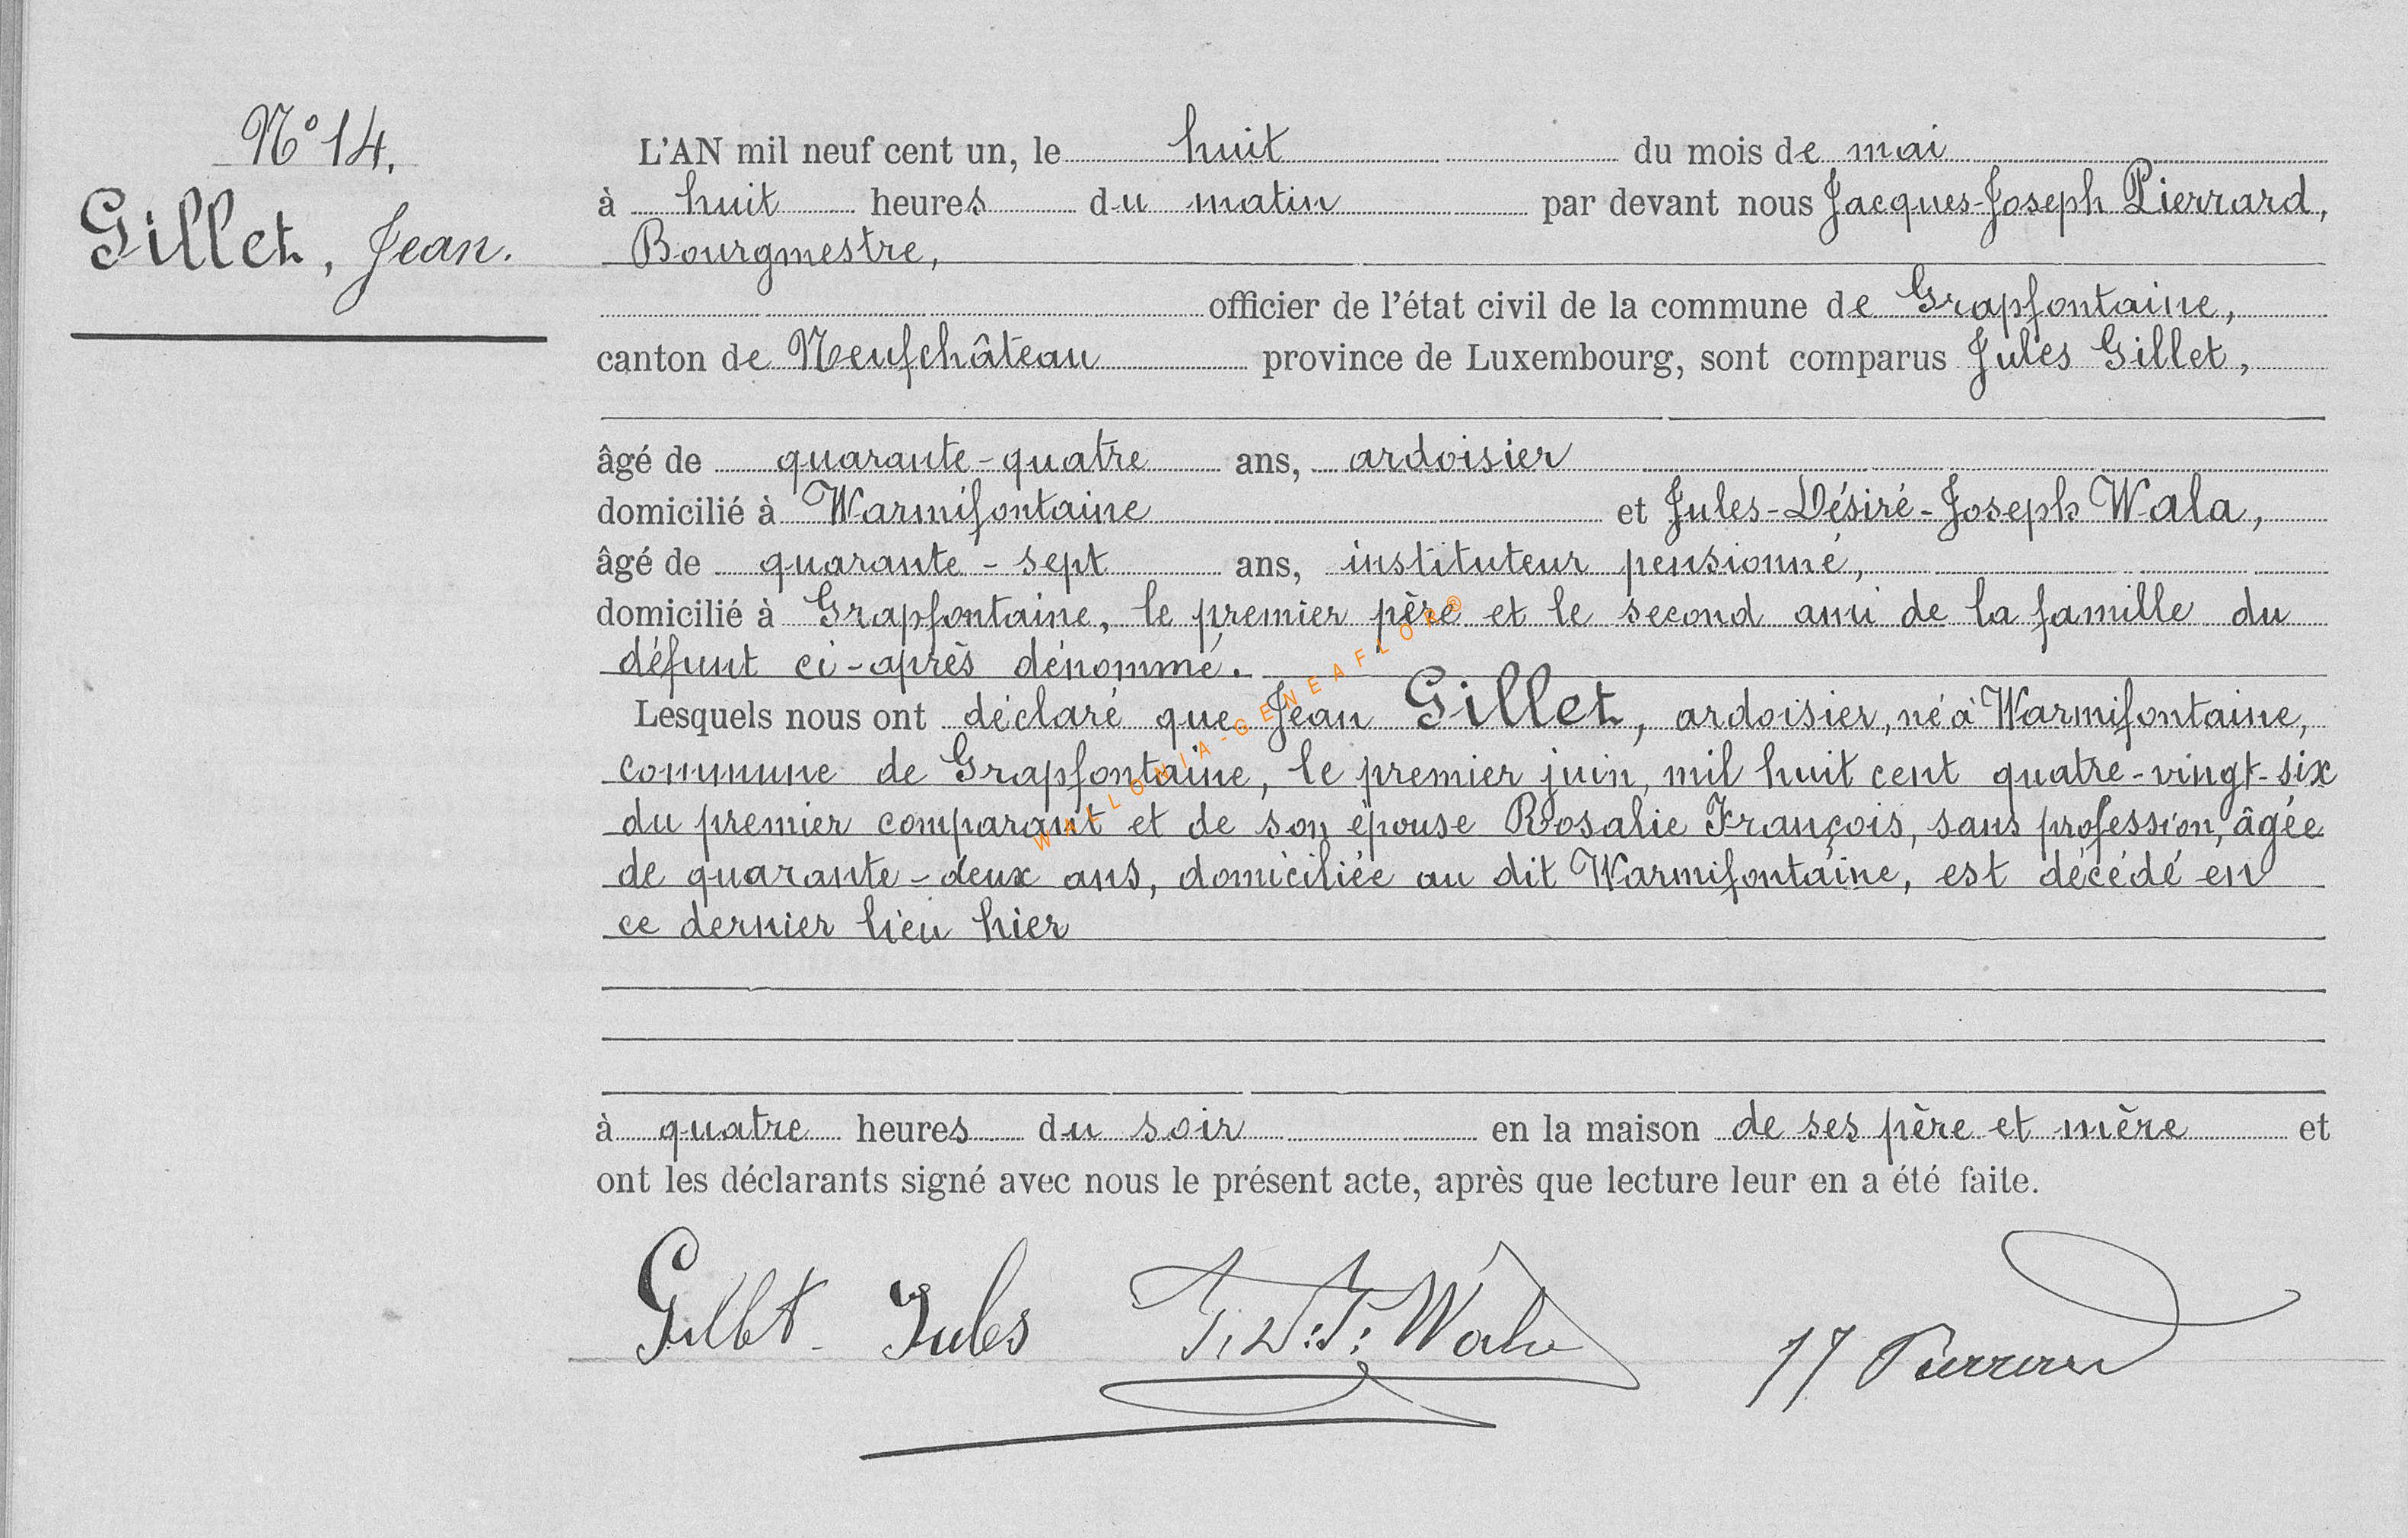 N° 14.
Gillet, Jean.
L'AN mil neuf cent un, le huit du mois de mai
à huit heures du matin par devant nous Jacques-Joseph Pierrard,
Bourgmestre,
officier de l'état civil de la commune de Grapfontaine,
canton de Neufchâteau province de Luxembourg, sont comparus Jules Gillet,
âgé de quarante-quatre ans, ardoisier
domicilié à Warmifontaine et Jules-Désiré-Joseph Wala,
âgé de quarante-sept ans, instituteur pensionné,
domicilié à Grapfontaine, le premier père et le second ami de la famille du
défunt ci-après dénommé.
Lesquels nous ont déclaré que Jean Gillet, ardoisier, né à Warmifontaine,
commune de Grapfontaine, le premier juin, mil huit cent quatre-vingt-six
du premier comparant et de son épouse Rosalie François, sans profession, âgée
de quarante-deux ans, domiciliée au dit Warmifontaine, est décédé en
ce dernier lieu hier
à quatre heures du soir en la maison de ses père et mère et
ont les déclarants signé avec nous le présent acte, après que lecture leur en a été faite.
Gillet Jules J. D. J. Wala JJ Pierrard
WALLONIA-GENEAFLOR®